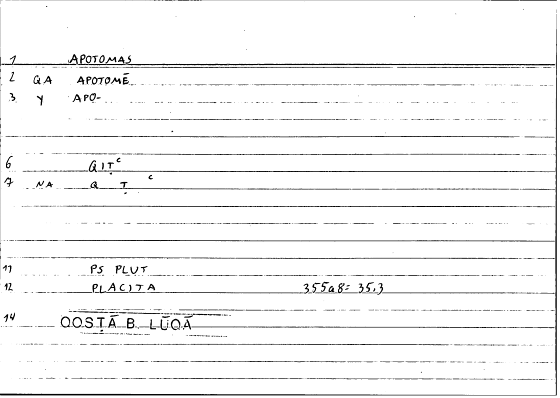 1 APOTOMAS
2 QA APOTOMĒ
3 Y APO-
6 QIṬᶜ
7 NA Q Ṭ ᶜ
11 PS PLUT
12 PLACITA 355a8= 35,3
14 QOSṬĀ B. LŪQĀ